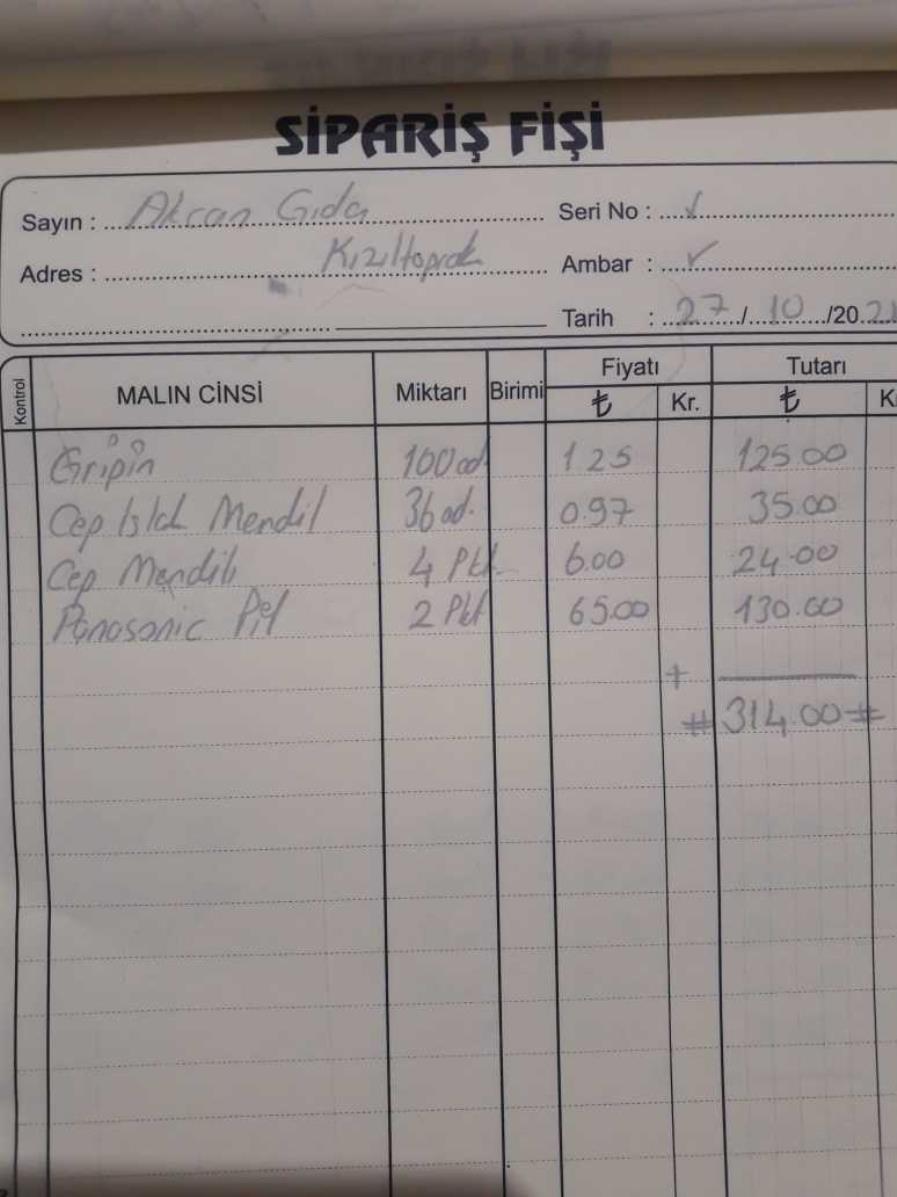 SİPARİŞ FİŞİ
Sayın : Akcan Gıda Seri No : ✓
Adres : Kızıltoprak Ambar : ✓
Tarih : 27 / 10 /20 21
Kontrol MALIN CİNSİ Miktarı Birimi Fiyatı ₺ Kr. Tutarı ₺
Gripin 100 ad. 1 25 125.00
Cep Islak Mendil 36 ad. 0.97 35.00
Cep Mendili 4 Pkt. 6.00 24.00
Panasonic Pil 2 Pkt 65.00 130.00
+
#314.00#